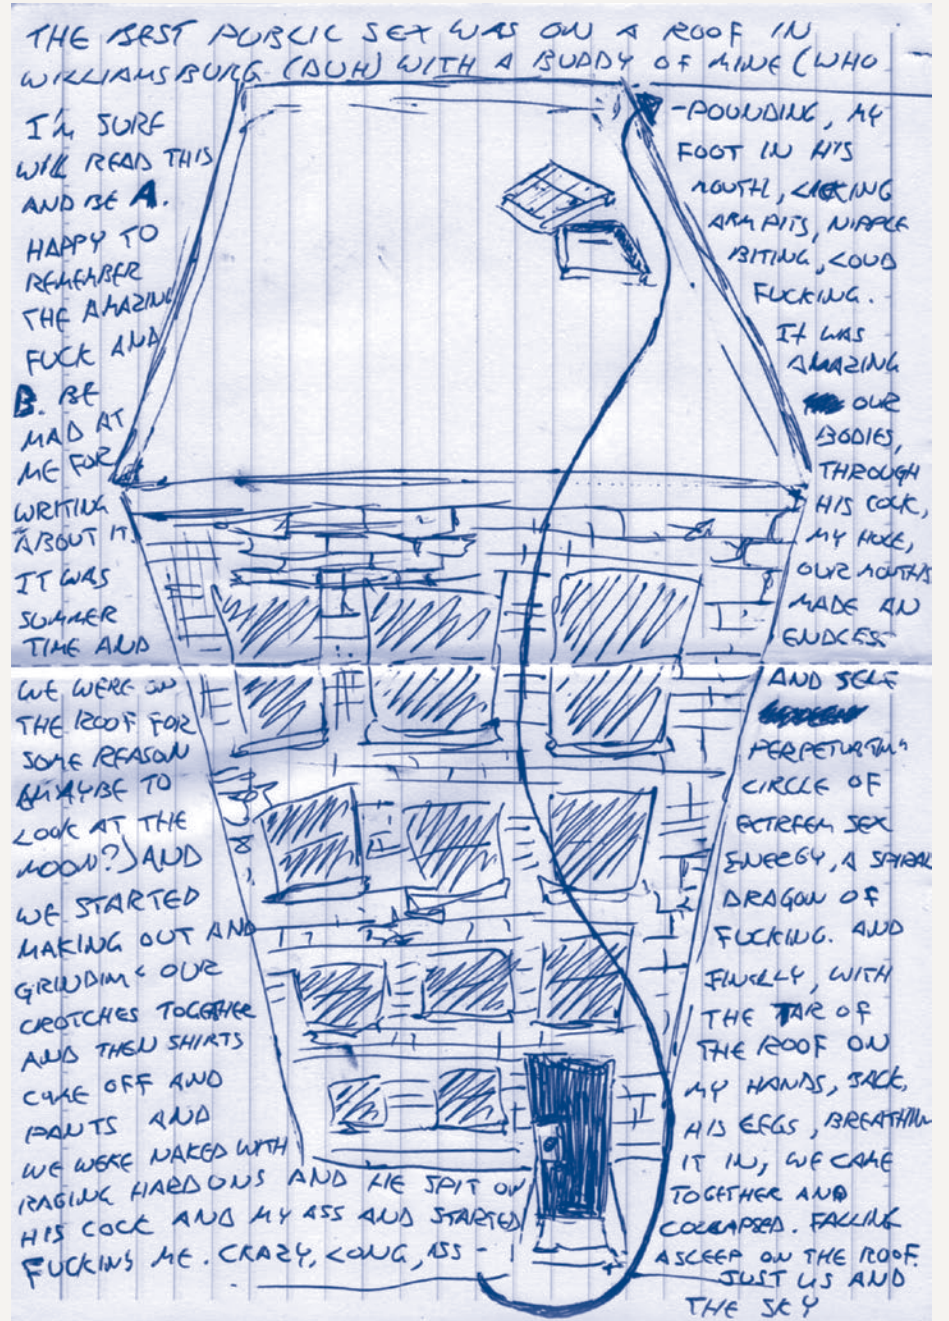 THE BEST PUBLIC SEX WAS ON A ROOF IN
WILLIAMSBURG (DUH) WITH A BUDDY OF MINE (WHO
I'm SURE
WILL READ THIS
AND BE A.
HAPPY TO
REMEMBER
THE AMAZING
FUCK AND
B. BE
MAD AT
ME FOR
WRITING
ABOUT IT)
IT WAS
SUMMER
TIME AND
WE WERE ON
THE ROOF FOR
SOME REASON
(MAYBE TO
LOOK AT THE
MOON?) AND
WE STARTED
MAKING OUT AND
GRINDIN' OUR
CROTCHES TOGETHER
AND THEN SHIRTS
CAME OFF AND
PANTS AND
WE WERE NAKED WITH
RAGING HARD ONS AND HE SPIT ON
HIS COCK AND MY ASS AND STARTED
FUCKING ME. CRAZY, LONG, ASS-
-POUNDING, MY
FOOT IN HIS
MOUTH, LICKING
ARMPITS, NIPPLE
BITING, LOUD
FUCKING.
It WAS
AMAZING
OUR
BODIES,
THROUGH
HIS COCK,
MY HOLE,
OUR MOUTHS
MADE AN
ENDLESS
AND SELF
PERPETUATIN'
CIRCLE OF
EXTREEM SEX
ENERGY, A SPIRAL
DRAGON OF
FUCKING. AND
FINALLY, WITH
THE TAR OF
THE ROOF ON
MY HANDS, BACK,
HIS LEGS, BREATHIN
IT IN, WE CAME
TOGETHER AND
COLLAPSED. FALLING
ASLEEP ON THE ROOF.
JUST US AND
THE SKY